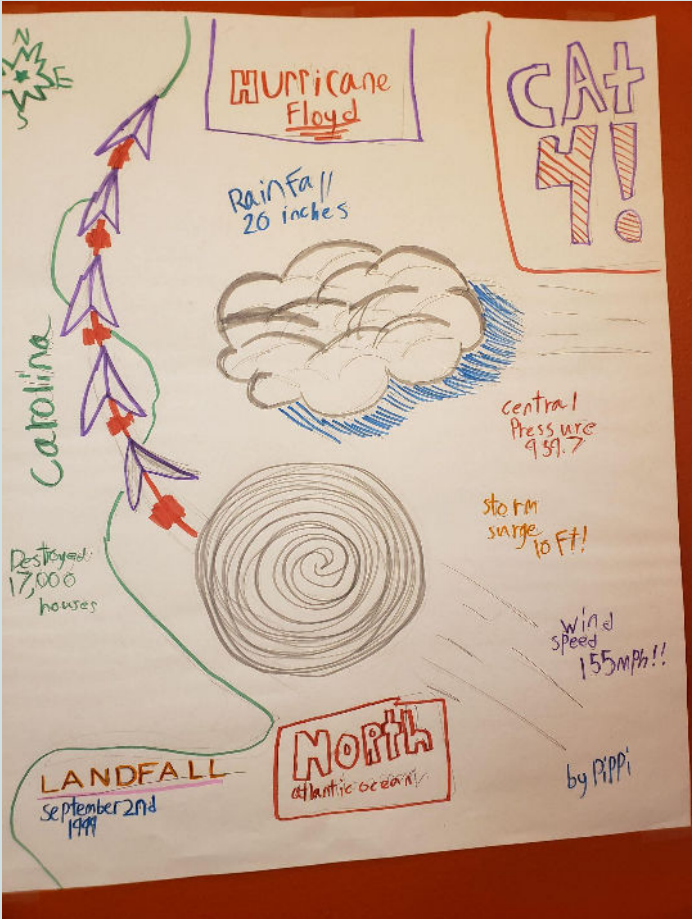 N
E
S
Hurricane
Floyd
CAt
4!
Rainfall
20 inches
Carolina
central
Pressure
939.7
storm
surge
10 Ft!!
Destroyed:
17,000
houses
wind
speed
155mph!!
NORth
atlantic ocean
LANDFALL
September 2nd
1999
by PiPPi